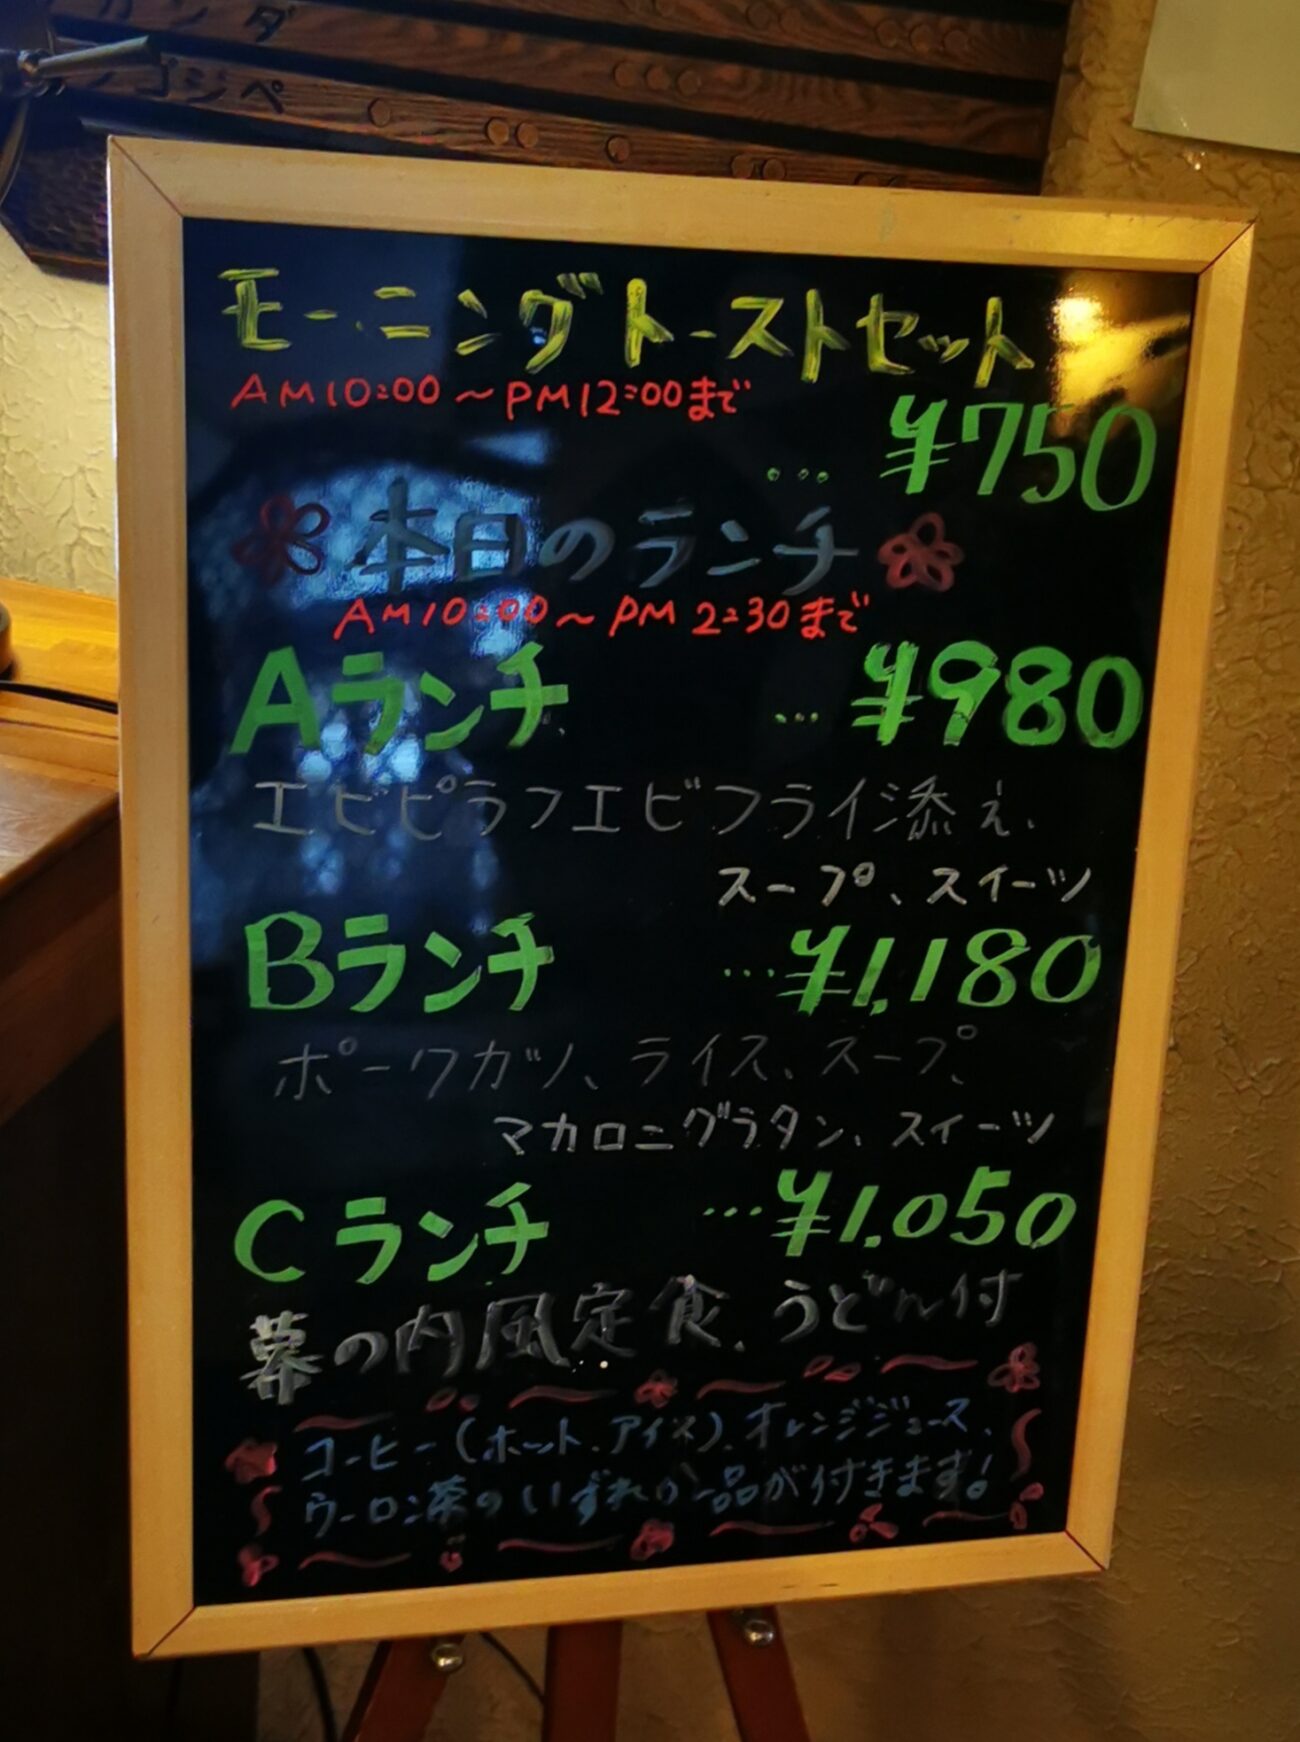 ンダ
ンゴジペ
モーニングトーストセット
AM10:00～PM12:00まで
… ¥750
本日のランチ
AM10:00～PM 2:30まで
Aランチ … ¥980
エビピラフエビフライ添え、
スープ、スイーツ
Bランチ …¥1,180
ポークカツ、ライス、スープ、
マカロニグラタン、スイーツ
Cランチ …¥1,050
幕の内風定食、うどん付
コーヒー(ホット、アイス)、オレンジジュース、
ウーロン茶のいずれか一品が付きます!